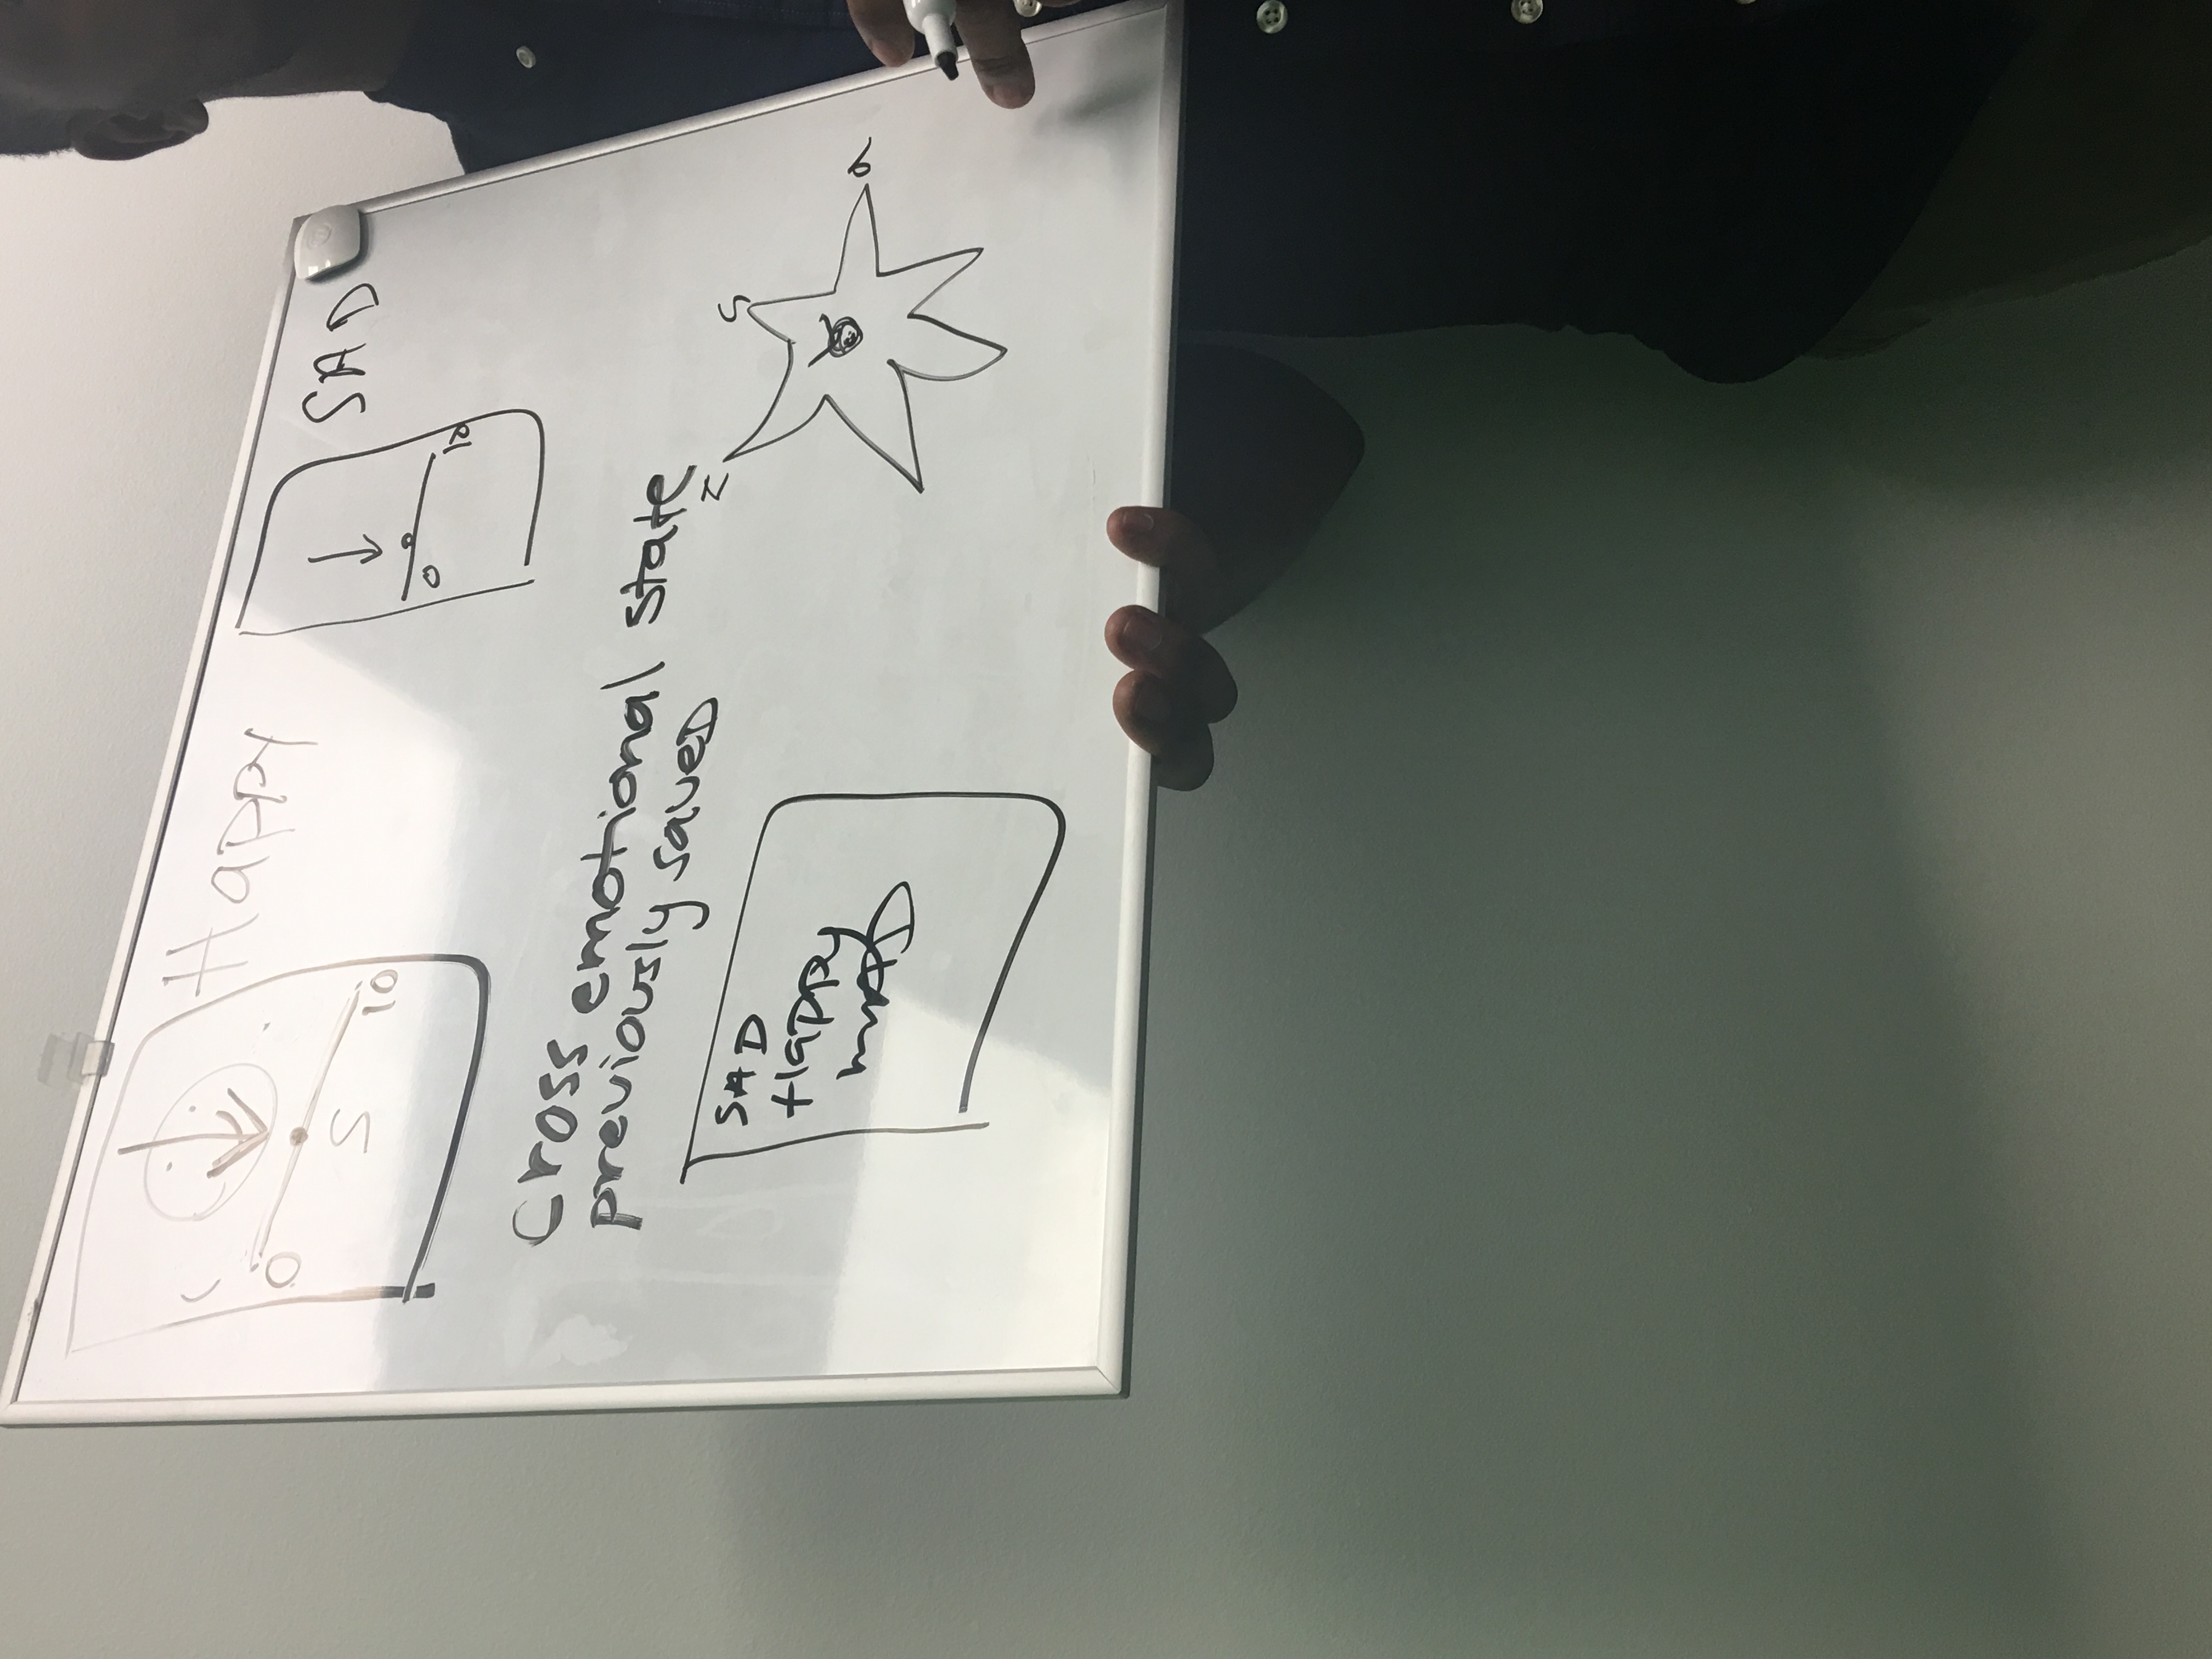 Happy
0
5
10
SAD
0
10
cross emotional state
previously saveD
SAD
Happy
mAD
S
a